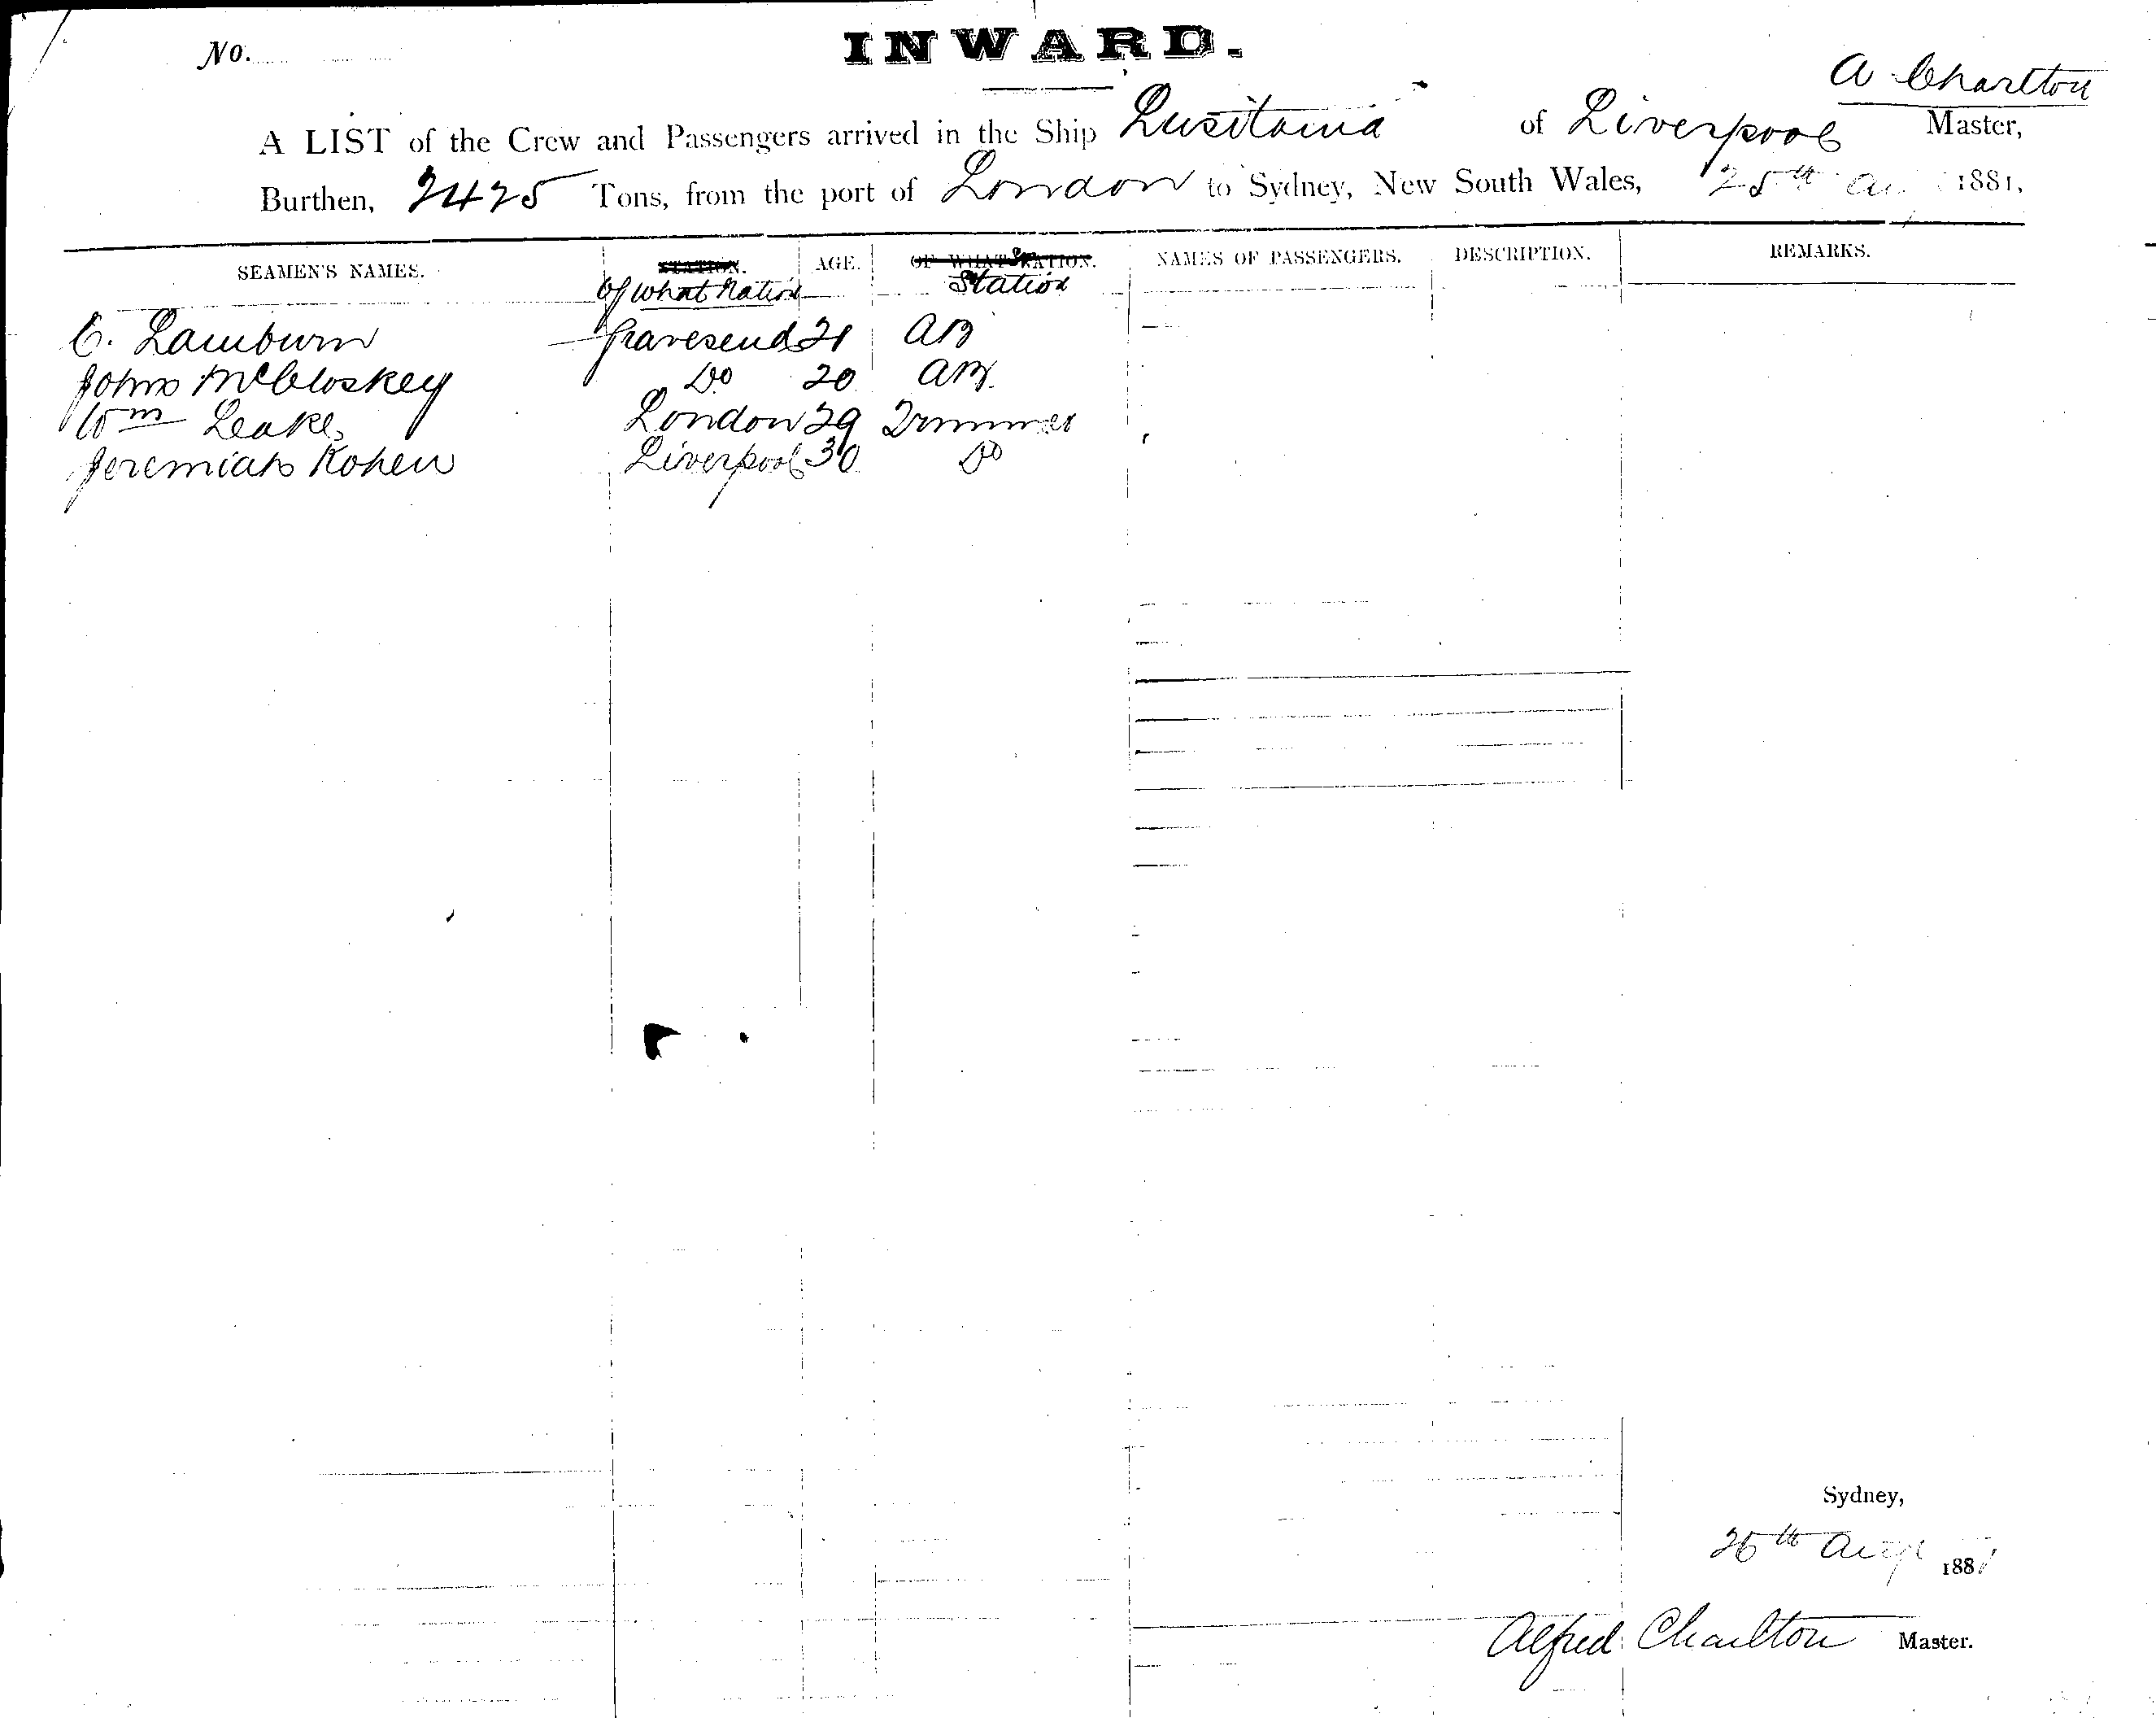 No.
INWARD.
A Charlton
A LIST of the Crew and Passengers arrived in the Ship Lusitania of Liverpool Master,
Burthen, 2425 Tons, from the port of London to Sydney, New South Wales, 25th Au 1881,
SEAMEN'S NAMES. STATION. AGE. OF WHAT NATION. NAMES OF PASSENGERS. DESCRIPTION. REMARKS.
Of What Nation Station
C. Lamburn Gravesend 21 AB
John McCloskey Do 20 AB.
Wm Leake London 29 Trimmer
Jeremiah Kohen Liverpool 30 Do
Sydney,
26th Augt 1881
Alfred Charlton Master.